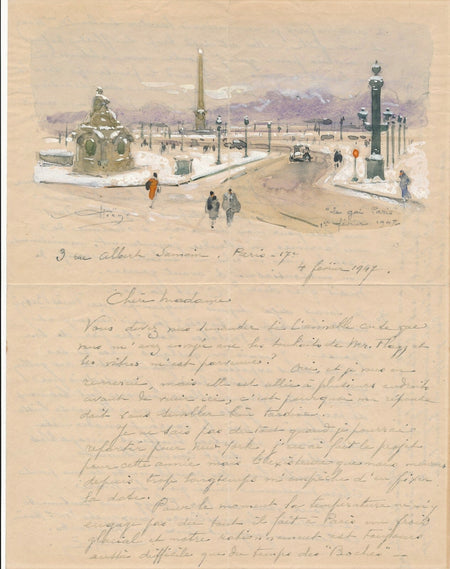 "Le gai Paris"
1er février 1947
3 rue Albert Samain. Paris-17e
4 février 1947.
Chère Madame
Vous devez vous demander si l'aimable carte que
vous m'avez envoyée avec les souhaits de Mr.
les vôtres m'est parvenue? Oui, et je vous en
remercie, mais elle est allée à plusieurs endroits
avant de venir ici, c'est pourquoi ma réponse
doit vous sembler bien tardive.
Je ne sais pas du tout quand je pourrai
repartir pour New York, j'avais fait le projet
pour cette année mais l'existence que nous menons
depuis trop longtemps m'empêche d'en fixer
la date.
Pour le moment la température ne m'y
engage pas du tout il fait à Paris un froid
glacial et notre rationnement est toujours
aussi difficile que du temps des "Boches" —